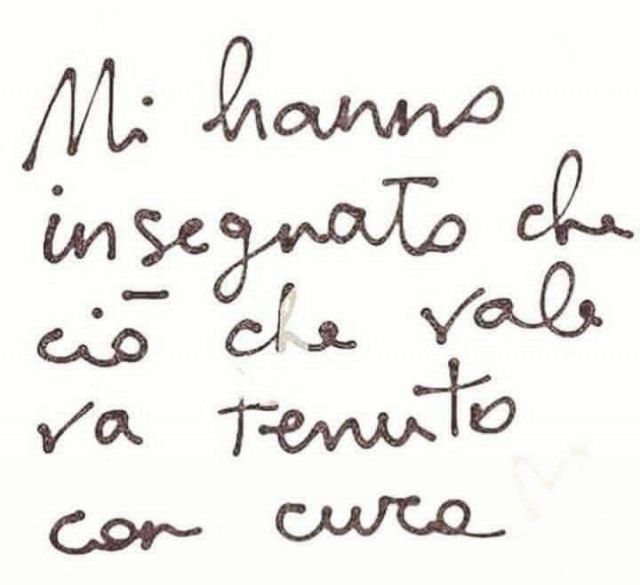 Mi hanno
insegnato che
ciò che vale
va tenuto
con cura